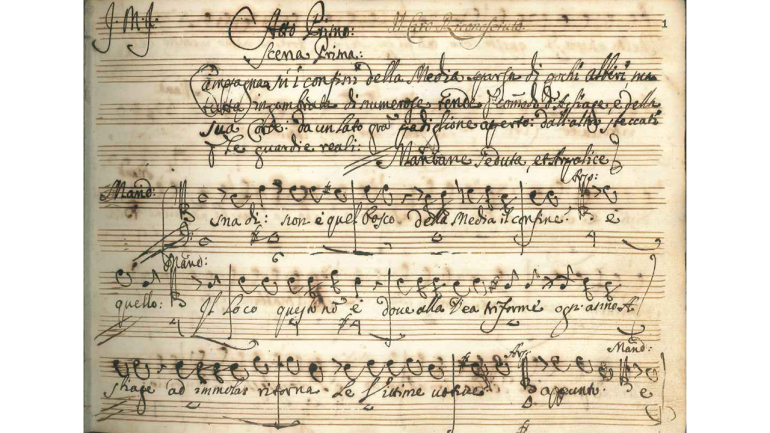 J. M. J. Atto Primo: Il Ciro Riconosciuto. 1
Scena Prima:
Campagna sù i confini della Media sparsa di pochi alberi ma
tutta ingombrata di numerose tende p comodo d'Astiage, e della
sua Corte. da un lato gran padiglione aperto: dall'altro steccati
p le guardie reali:
Mandane seduta, et Arpalice
Mand: Arp:
Ma di: non è quel bosco della Media il confine? è
Mand:
quello: Il loco questo non è dove alla Dea triforme ogn'anno A
Arp: Mand:
stiage ad immolar ritorna le vittime votive? appunto. e